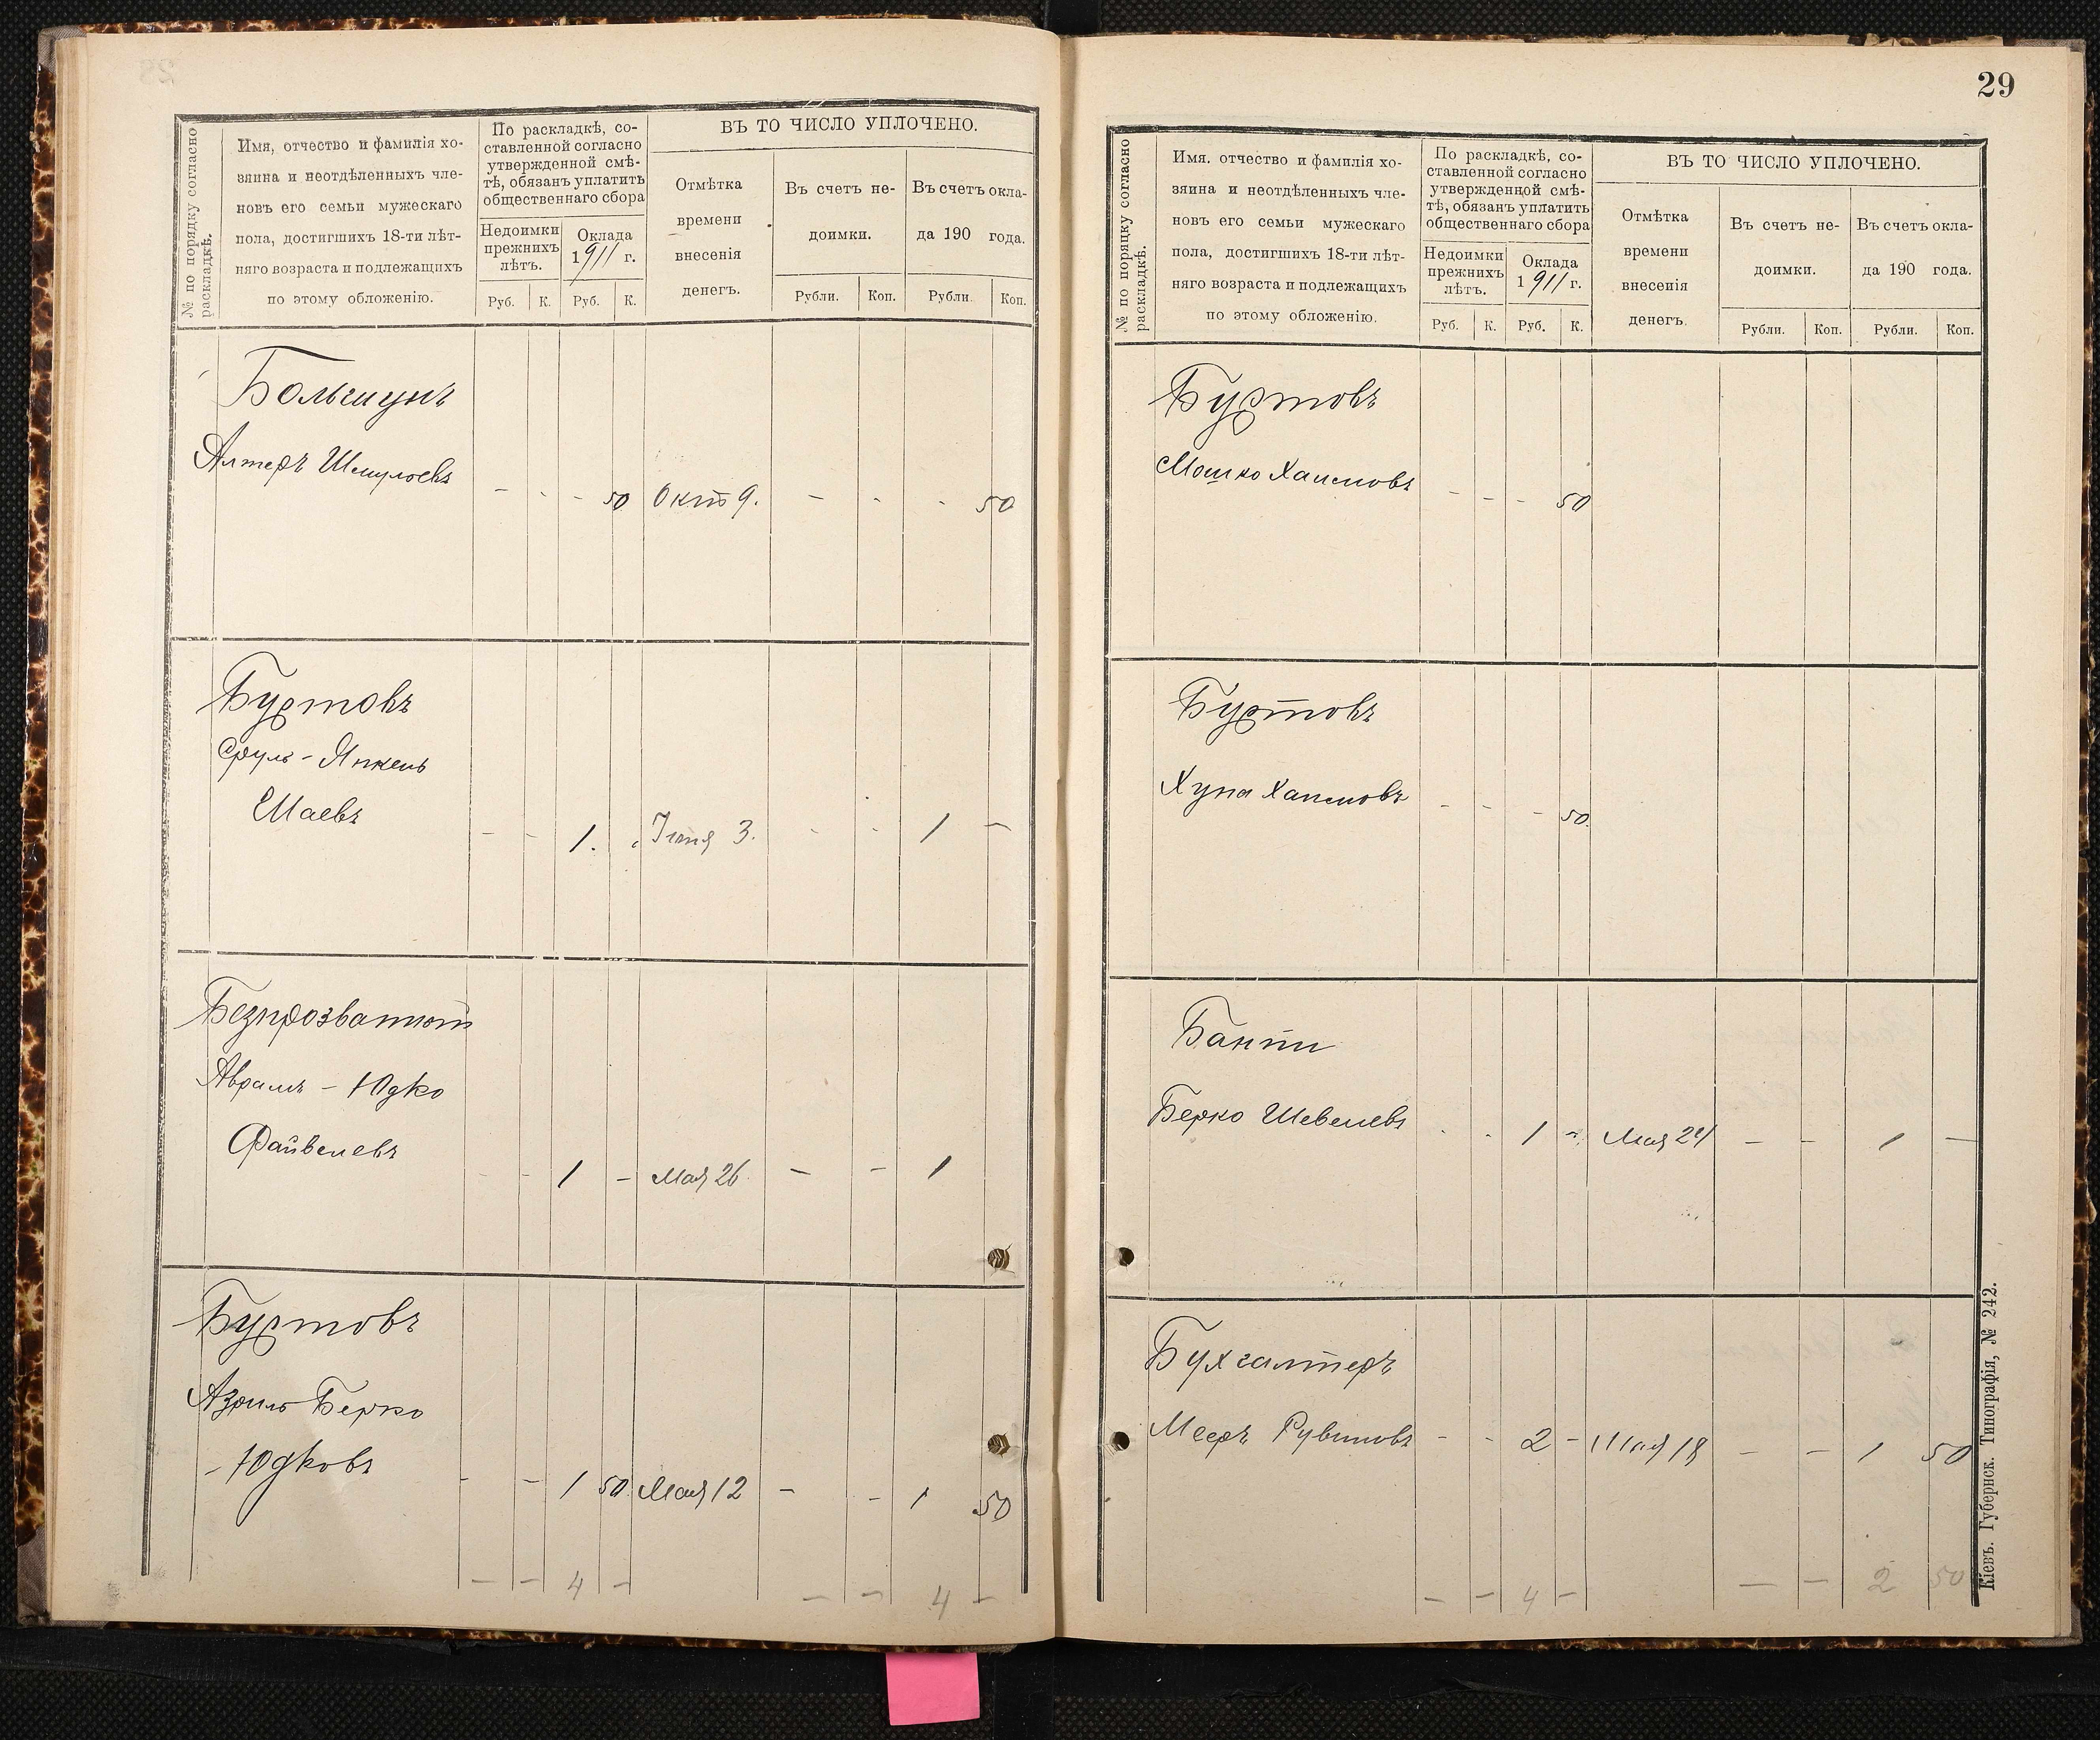 № по порядку согласно
раскладкѣ.
Имя, отчество и фамилія хо-
зяина и неотдѣленныхъ чле-
новъ его семьи мужескаго
пола, достигшихъ 18-ти лѣт-
няго возраста и подлежащихъ
по этому обложенію.
По раскладкѣ, со-
ставленной согласно
утвержденной смѣ-
тѣ, обязанъ уплатить
общественнаго сбора
Недоимки
прежнихъ
лѣтъ.
Оклада
1911 г.
Руб. К. Руб. К.
ВЪ ТО ЧИСЛО УПЛОЧЕНО.
Отмѣтка
времени
внесенія
денегъ.
Въ счетъ не-
доимки.
Въ счетъ окла-
да 190 года.
Рубли. Коп. Рубли. Коп.
Большунъ
Алтеръ Шмулоевъ
- - - 50 Окт 9. - - - 50
Буртовъ
Сруль - Янкель
Шаевъ
- - 1. Іюня 3. - - 1 -
Безпрозванный
Аврамъ - Юдко
Файвелевъ
- - 1 - Мая 26 - - 1
Буртовъ
Азриль Берко
- Юдковъ
- - 1 50 Мая 12 - - 1 50
- - 4 - - - 4 -
29
№ по порядку согласно
раскладкѣ.
Имя. отчество и фамилія хо-
зяина и неотдѣленныхъ чле-
новъ его семьи мужескаго
пола, достигшихъ 18-ти лѣт-
няго возраста и подлежащихъ
по этому обложенію.
По раскладкѣ, со-
ставленной согласно
утвержденной смѣ-
тѣ, обязанъ уплатить
общественнаго сбора
Недоимки
прежнихъ
лѣтъ.
Оклада
1911 г.
Руб. К. Руб. К.
ВЪ ТО ЧИСЛО УПЛОЧЕНО.
Отмѣтка
времени
внесенія
денегъ.
Въ счетъ не-
доимки.
Въ счетъ окла-
да 190 года.
Рубли. Коп. Рубли. Коп.
Буртовъ
Мошко Хаимовъ
- - - 50
Буртовъ
Хуна Хаимовъ
- - - 50.
Банти
Берко Шевелевъ
1 - Мая 24 - - 1 -
Бухгалтеръ
Мееръ Рувиновъ
- - 2 - Мая 18 - - 1 50
- - 4 - - - 2 50
Кіевъ. Губернск. Типографія, № 242.